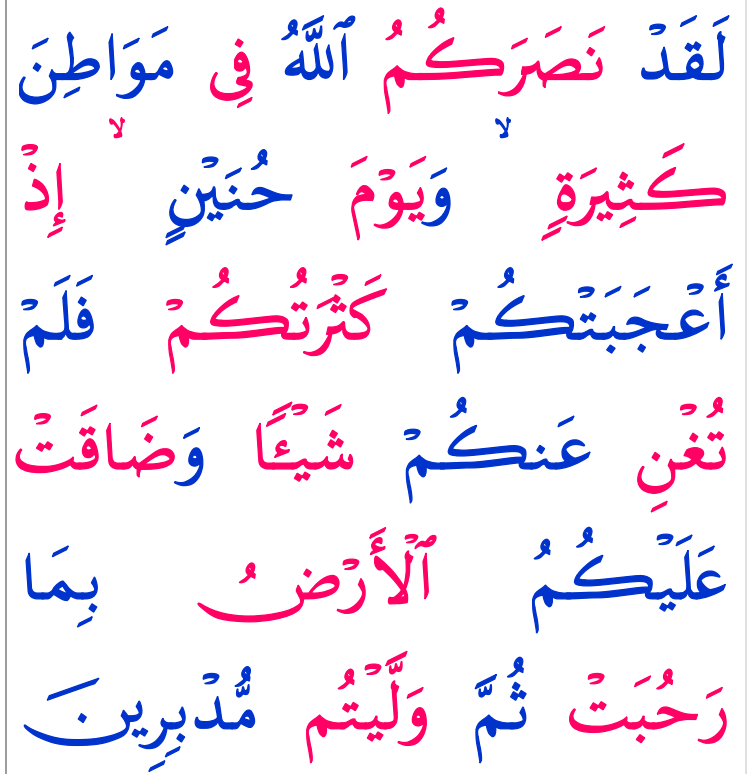 لَقَدْ نَصَرَكُمُ ٱللَّهُ فِى مَوَاطِنَ
كَثِيرَةٍۙ وَيَوْمَ حُنَيْنٍۙ إِذْ
أَعْجَبَتْكُمْ كَثْرَتُكُمْ فَلَمْ
تُغْنِ عَنكُمْ شَيْـًٔا وَضَاقَتْ
عَلَيْكُمُ ٱلْأَرْضُ بِمَا
رَحُبَتْ ثُمَّ وَلَّيْتُم مُّدْبِرِينَ